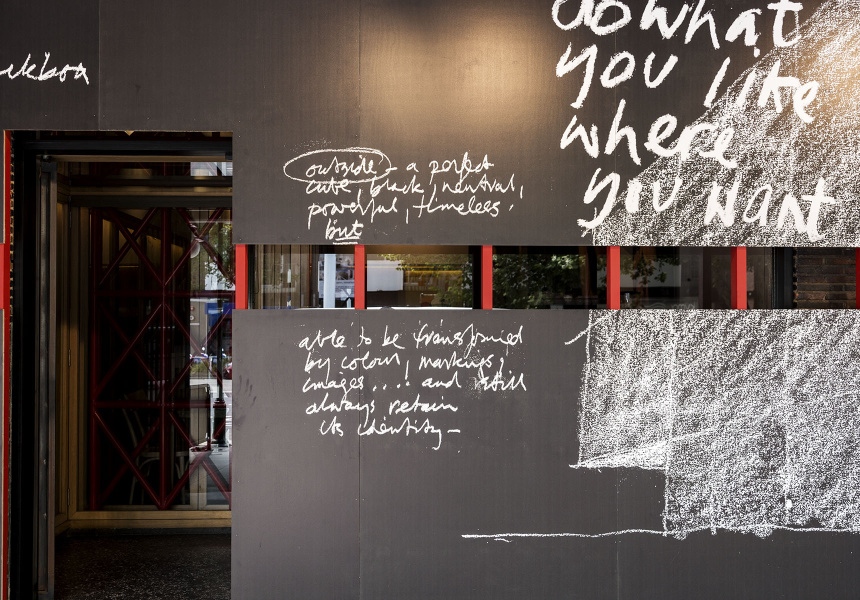 do what
you like
where
you want
outside - a perfect
cube, black, neutral,
powerful, timeless.
but
able to be transformed
by colour, markings,
images .... and still
always retain
its identity –